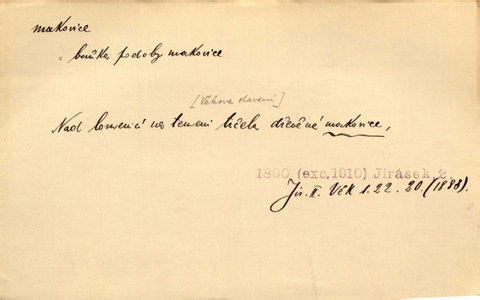 makovice
= bouřka podoby makovice
[Věkova stavení]
Nad lomenicí na temeni trčela dřevěné makovice,
1890 (exc. 1910) Jirásek 2.
Jir. II. Věk 1. 22. 20. (1888).